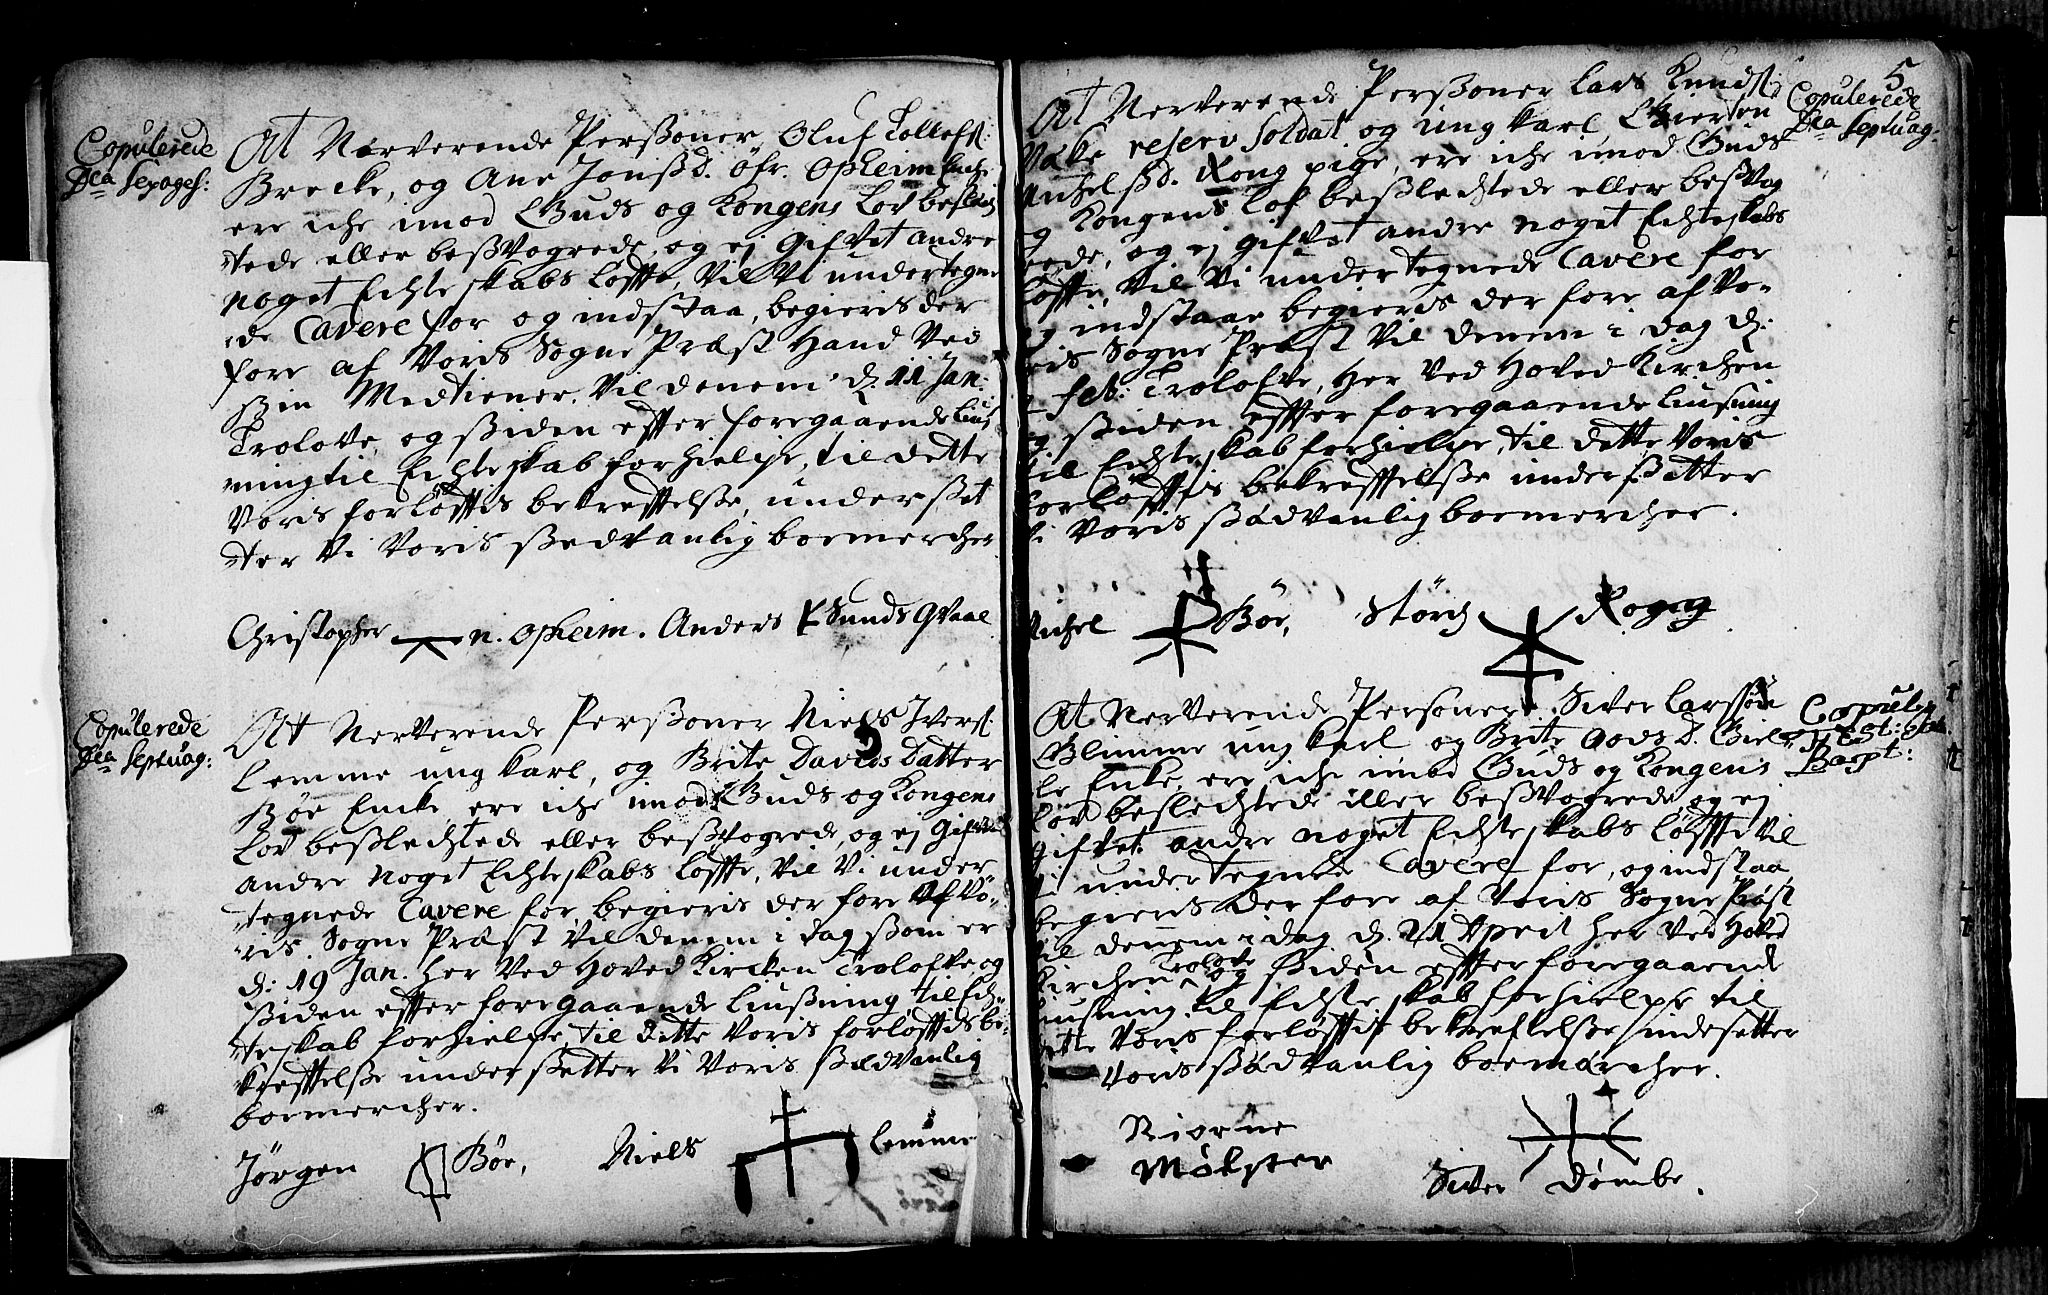 Copulerede
Dca Sexages:
At Nerverende Perßoner Oluf Tollefs:
Brecke, og Ane Jonsd. öfr. Opheim
ere iche imod Guds og Kongens Lov beslech
tede eller beßvogrede, og ej Gifvet andre
noget Echteskabs Löffte, Vil Vi undertegne
de Cavere for og indstaa, begieris der
fore af Voris Sogne Præst Hand Ved
ßin Medtiener Vil denem d. 11 Jan:
Trolove, og ßiden effter foregaaende Lius
ning til Echteskab forhielpe, til dette
Voris forlöfftis bekrefftelße, underßet
ter Vi Voris ßedvanlig boemercher
Christopher n. Opheim. Anders Sunds Qvaal
Copulerede
Dca Septuag:
At Nerverende Perßoner Niels Ivers:
Lemme ung karl, og Brite Davids Datter
Böe Encke, ere iche imod Guds og Kongens
Lov beßlechtede eller beßvogrede, og ej Gifvet
andre noget Echteskabs Löffte, Vil Vi under
tegnede Cavere for, begieris der fore Af Vo-
ris Sogne Præst Vil denem i dag ßom er
d: 19 Jan. her Ved Hoved Kircken Trolofve, og
ßiden effter foregaaende Liußning til Ech-
teskab forhielpe, til dette Voris forlöfftis be-
krefftelße underßetter Vi Voris ßædvanlig
boemercher.
Jörgen Böe, Niels Lemme
5
Copulerede
Dca Septuag:
At Nerverende Perßoner Lars Knuds:
reserv Soldat og ung karl,
ßd. Rong pige, ere iche imod Guds
og Kongens Lof beßlechtede eller beßvog
rede, og ej gifvet andre noget Echteskabs
Löffte, Vil Vi undertegnede Cavere for
og indstaae begieris der fore af Vo-
ris Sogne Præst Vil denem i dag d.
Feb: Trolofve, Her Ved Hoved Kirchen
og ßiden effter foregaaende Liusning
til Echteskab forhielpe, til dette Voris
forlöfftis bekrefftelße underßetter
Vi Voris ßædvanlig boemercher.
Michel Böe, Störch Rogng
Copuler
Bapt:
At Nerverende Personer Siver Larssön
Glimme ung karl og Brite D. Giel
le Enke, ere iche imod Guds og Kongens
Lov beslechtede eller beßvogrede, og ej
gifvet andre noget Echteskabs Löffte Vil
Vi undertegnede Cavere for, og indstaa,
begieris der fore af Voris Sogne Præst
Vil denem i dag d. 21 April her Ved Hoved
Kirchen Trolove og ßiden effter foregaaende
Liusning til Echteskab forhielpe til
dette Voris forlöfftis bekrefftelße undesetter
Voris ßædvanlig boemercher.
Biorne
Mölster
Siver Dömbe.